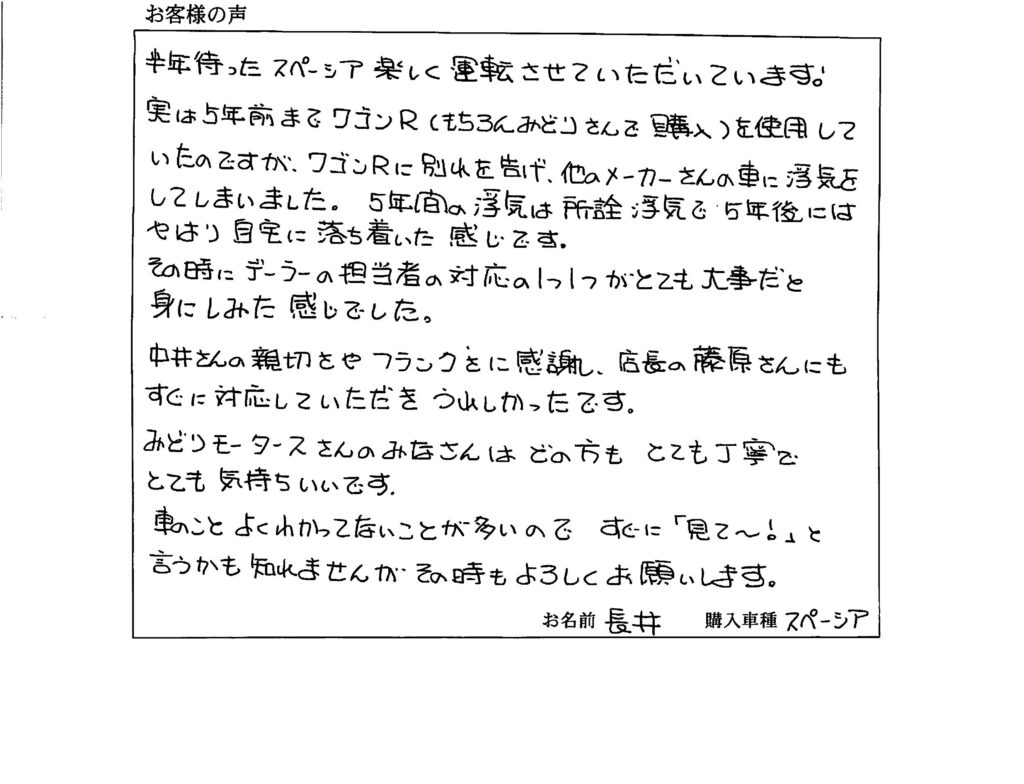 お客様の声
半年待った スペーシア 楽しく 運転させていただいています!
実は5年前まで ワゴンR (もちろんみどりさんで 購入)を使用して
いたのですが、ワゴンRに別れを告げ、他のメーカーさんの車に浮気を
してしまいました。 5年間の浮気は 所詮 浮気で 5年後には
やはり 自宅に 落ち着いた 感じです.
その時に デーラーの担当者の対応の1つ1つがとても大事だと
身にしみた 感じでした。
中井さんの親切さや フランクさに感謝し、店長の藤原さんにも
すぐに対応していただき うれしかったです。
みどりモータースさんのみなさんは どの方も とても丁寧で
とても 気持ちいいです.
車のこと よくわかってないことが多いので すぐに「見て〜!」と
言うかも 知れませんが その時もよろしくお願いします。
お名前 長井 購入車種 スペーシア